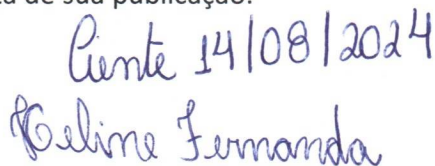 de sua publicação.
Ciente 14/08/2024
Keline Fernanda